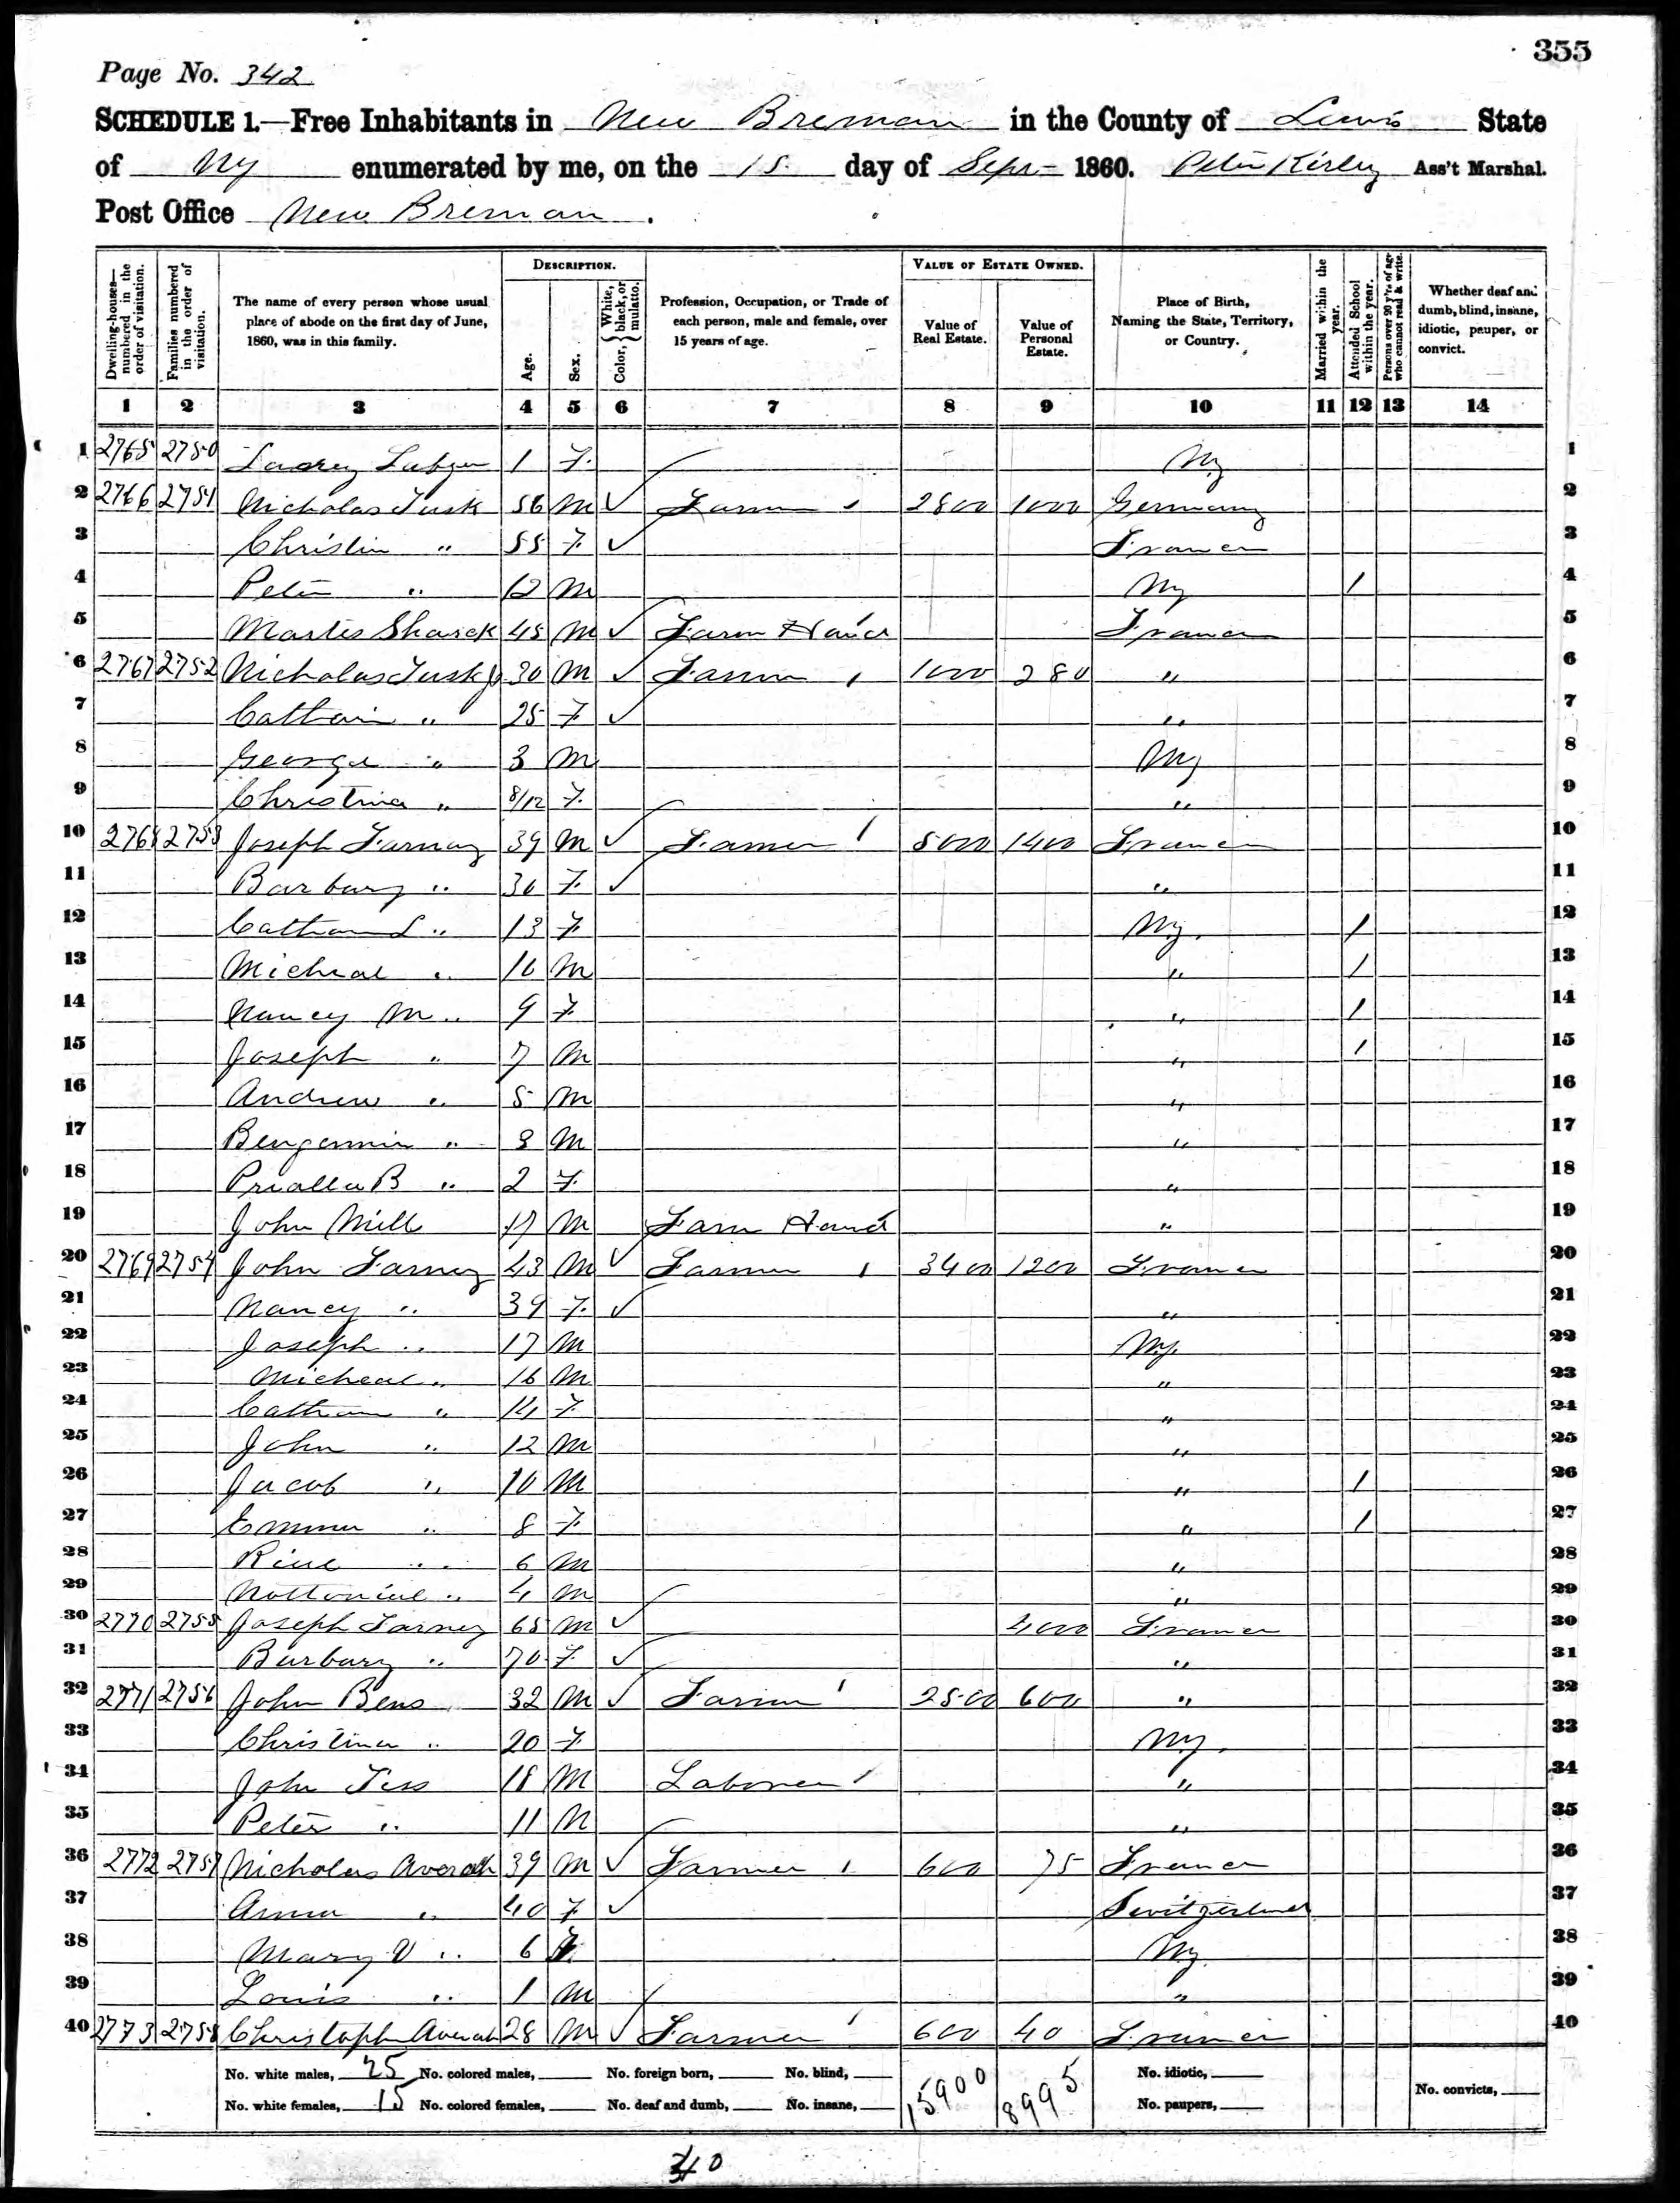 355
Page No. 342
SCHEDULE 1.—Free Inhabitants in New Breman in the County of Lewis State
of Ny enumerated by me, on the 15. day of Sept 1860. Peter Kirley Ass't Marshal.
Post Office New Breman.
Dwelling-houses—numbered in the order of visitation.
Families numbered in the order of visitation.
The name of every person whose usual place of abode on the first day of June, 1860, was in this family.
DESCRIPTION.
Age.
Sex.
Color, { White, black, or mulatto.
Profession, Occupation, or Trade of each person, male and female, over 15 years of age.
VALUE OF ESTATE OWNED.
Value of Real Estate.
Value of Personal Estate.
Place of Birth, Naming the State, Territory, or Country.
Married within the year.
Attended School within the year.
Persons over 20 y'rs of age who cannot read & write.
Whether deaf and dumb, blind, insane, idiotic, pauper, or convict.
1 2 3 4 5 6 7 8 9 10 11 12 13 14
1 2765 2750 1 F. Ny 1
2 2766 2751 Nicholas Tusk 56 M ✓ Farmer 2800 1000 Germany 2
3 Christin " 55 F. ✓ France 3
4 Peter " 12 M Ny / 4
5 Martes Sharek 45 M ✓ Farm Hand France 5
6 2767 2752 Nicholas Tusk Jr 30 M ✓ Farmer 1000 280 " 6
7 Cathain " 25 F ✓ " 7
8 George " 3 M Ny 8
9 Christina " 8/12 F. " 9
10 2768 2753 Joseph Farney 39 M ✓ Farmer 5000 1400 France 10
11 Barbary " 36 F. ✓ " 11
12 L " 13 F Ny. / 12
13 Micheal " 10 M " / 13
14 Nancy M " 9 F " / 14
15 Joseph " 7 M " / 15
16 Andrew " 5 M " 16
17 Bengermin " 3 M " 17
18 B " 2 F. " 18
19 John Mill 17 M Farm Hand " 19
20 2769 2754 John Farney 43 M ✓ Farmer 3400 1200 France 20
21 Nancy " 39 F. ✓ " 21
22 Joseph " 17 M Ny. 22
23 Micheal " 16 M " 23
24 " 14 F. " 24
25 John " 12 M " 25
26 Jacob " 10 M " / 26
27 Emma " 8 F. " / 27
28 " 6 M " 28
29 " 4 M " 29
30 2770 2755 Joseph Farney 65 M ✓ 4000 France 30
31 Barbary " 70 F ✓ " 31
32 2771 2756 John Bens 32 M ✓ Farmer 2500 600 " 32
33 Christina " 20 F Ny. 33
34 John Tiss 18 M Laborer " 34
35 Peter " 11 M " 35
36 2772 2757 Nicholas Averah 39 M ✓ Farmer 600 75 France 36
37 Anna " 40 F ✓ Switzerland 37
38 Mary V " 6 F. Ny. 38
39 Louis " 1 M " 39
40 2773 2758 Christoph Averah 28 M ✓ Farmer 600 40 France 40
No. white males, 25 No. colored males, No. foreign born, No. blind, 15900 8995 No. idiotic,
No. white females, 15 No. colored females, No. deaf and dumb, No. insane, No. paupers, No. convicts,
40